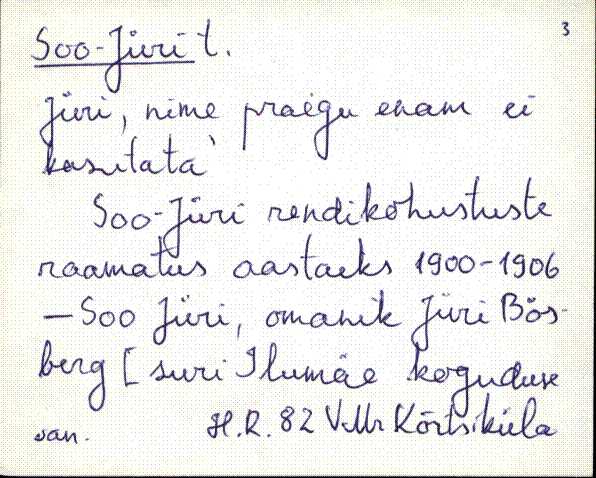 3
Soo-Jüri t.
Jüri, nime praegu enam ei
kasutata`
Soo-Jüri rendikohustuste
raamatus aastaeks 1900-1906
—Soo Jüri, omanik Jüri Bös-
berg [suri Ilumäe koguduse
van. H.R. 82 VMr Kõrtsiküla